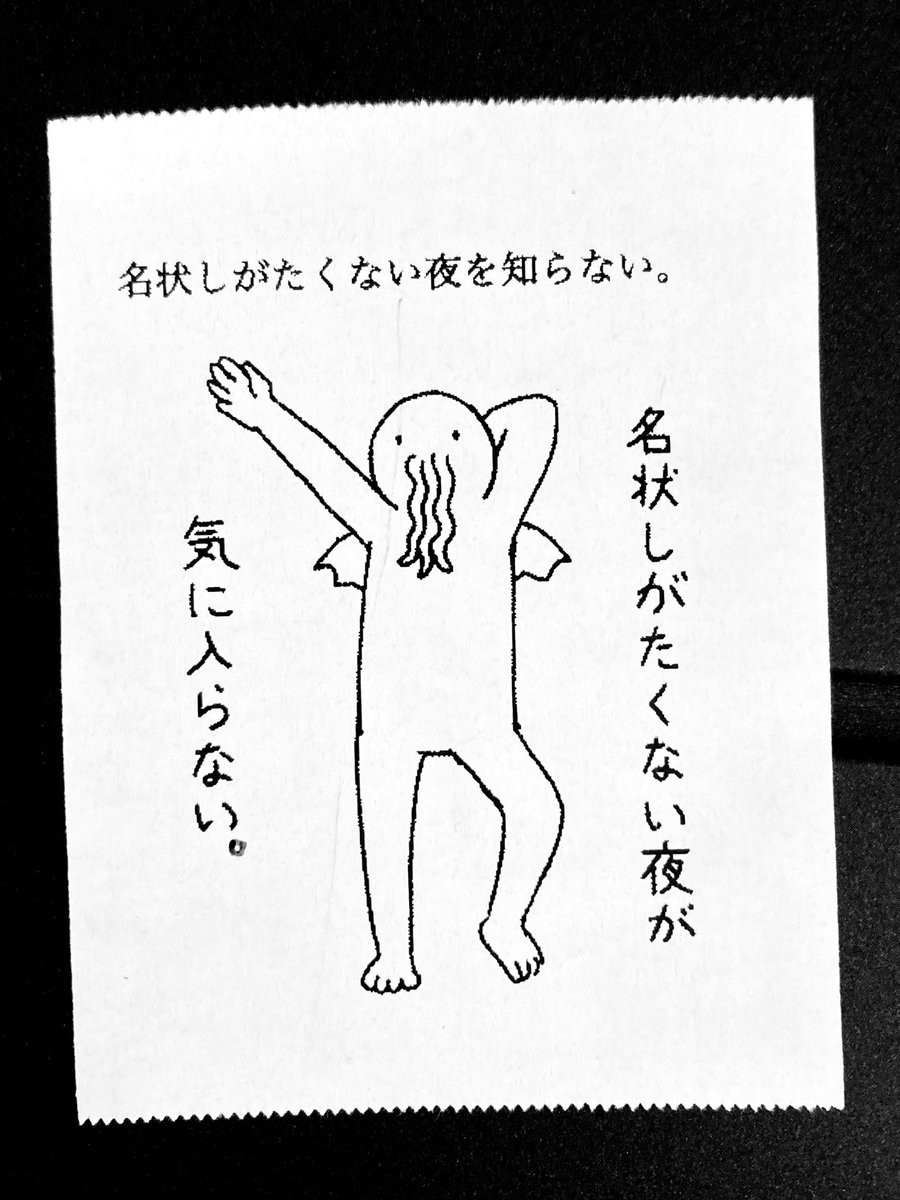 名状しがたくない夜を知らない。
名状しがたくない夜が
気に入らない。